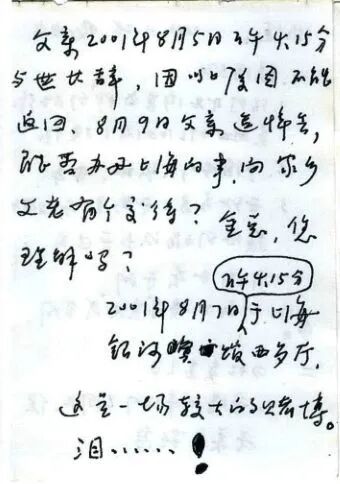 父亲2001年8月5日下午4.15分
与世长辞，因 原因不能
返回，8月9日父亲追悼会，
能否办好上海的事，向家乡
父老有个交待？金总，您
理解吗？
下午4.15分
2001年8月7日于上海
银河宾馆 西多厅．
这是一场较大的 赌博。
泪……！